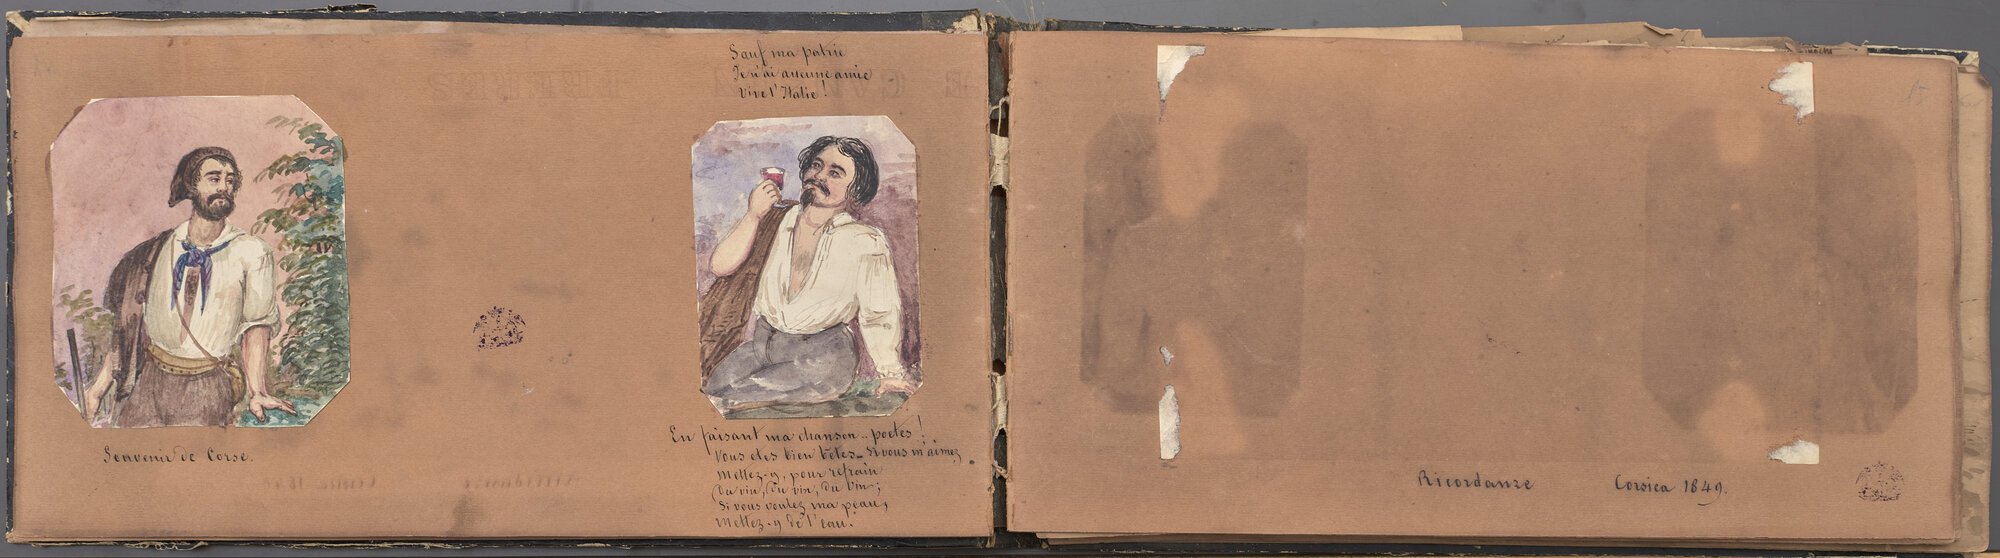 Souvenir de Corse.
Sauf ma patrie
Je n'ai aucune amie
Vive l'Italie!
En faisant ma chanson .. poetes!
Vous etes bien betes_ Si vous m'aimez
mettez-y, pour refrain
Du vin, du vin, du vin;
Si vous voulez ma peau,
mettez-y de l'eau.
15
Ricordanze Corsica 1849.